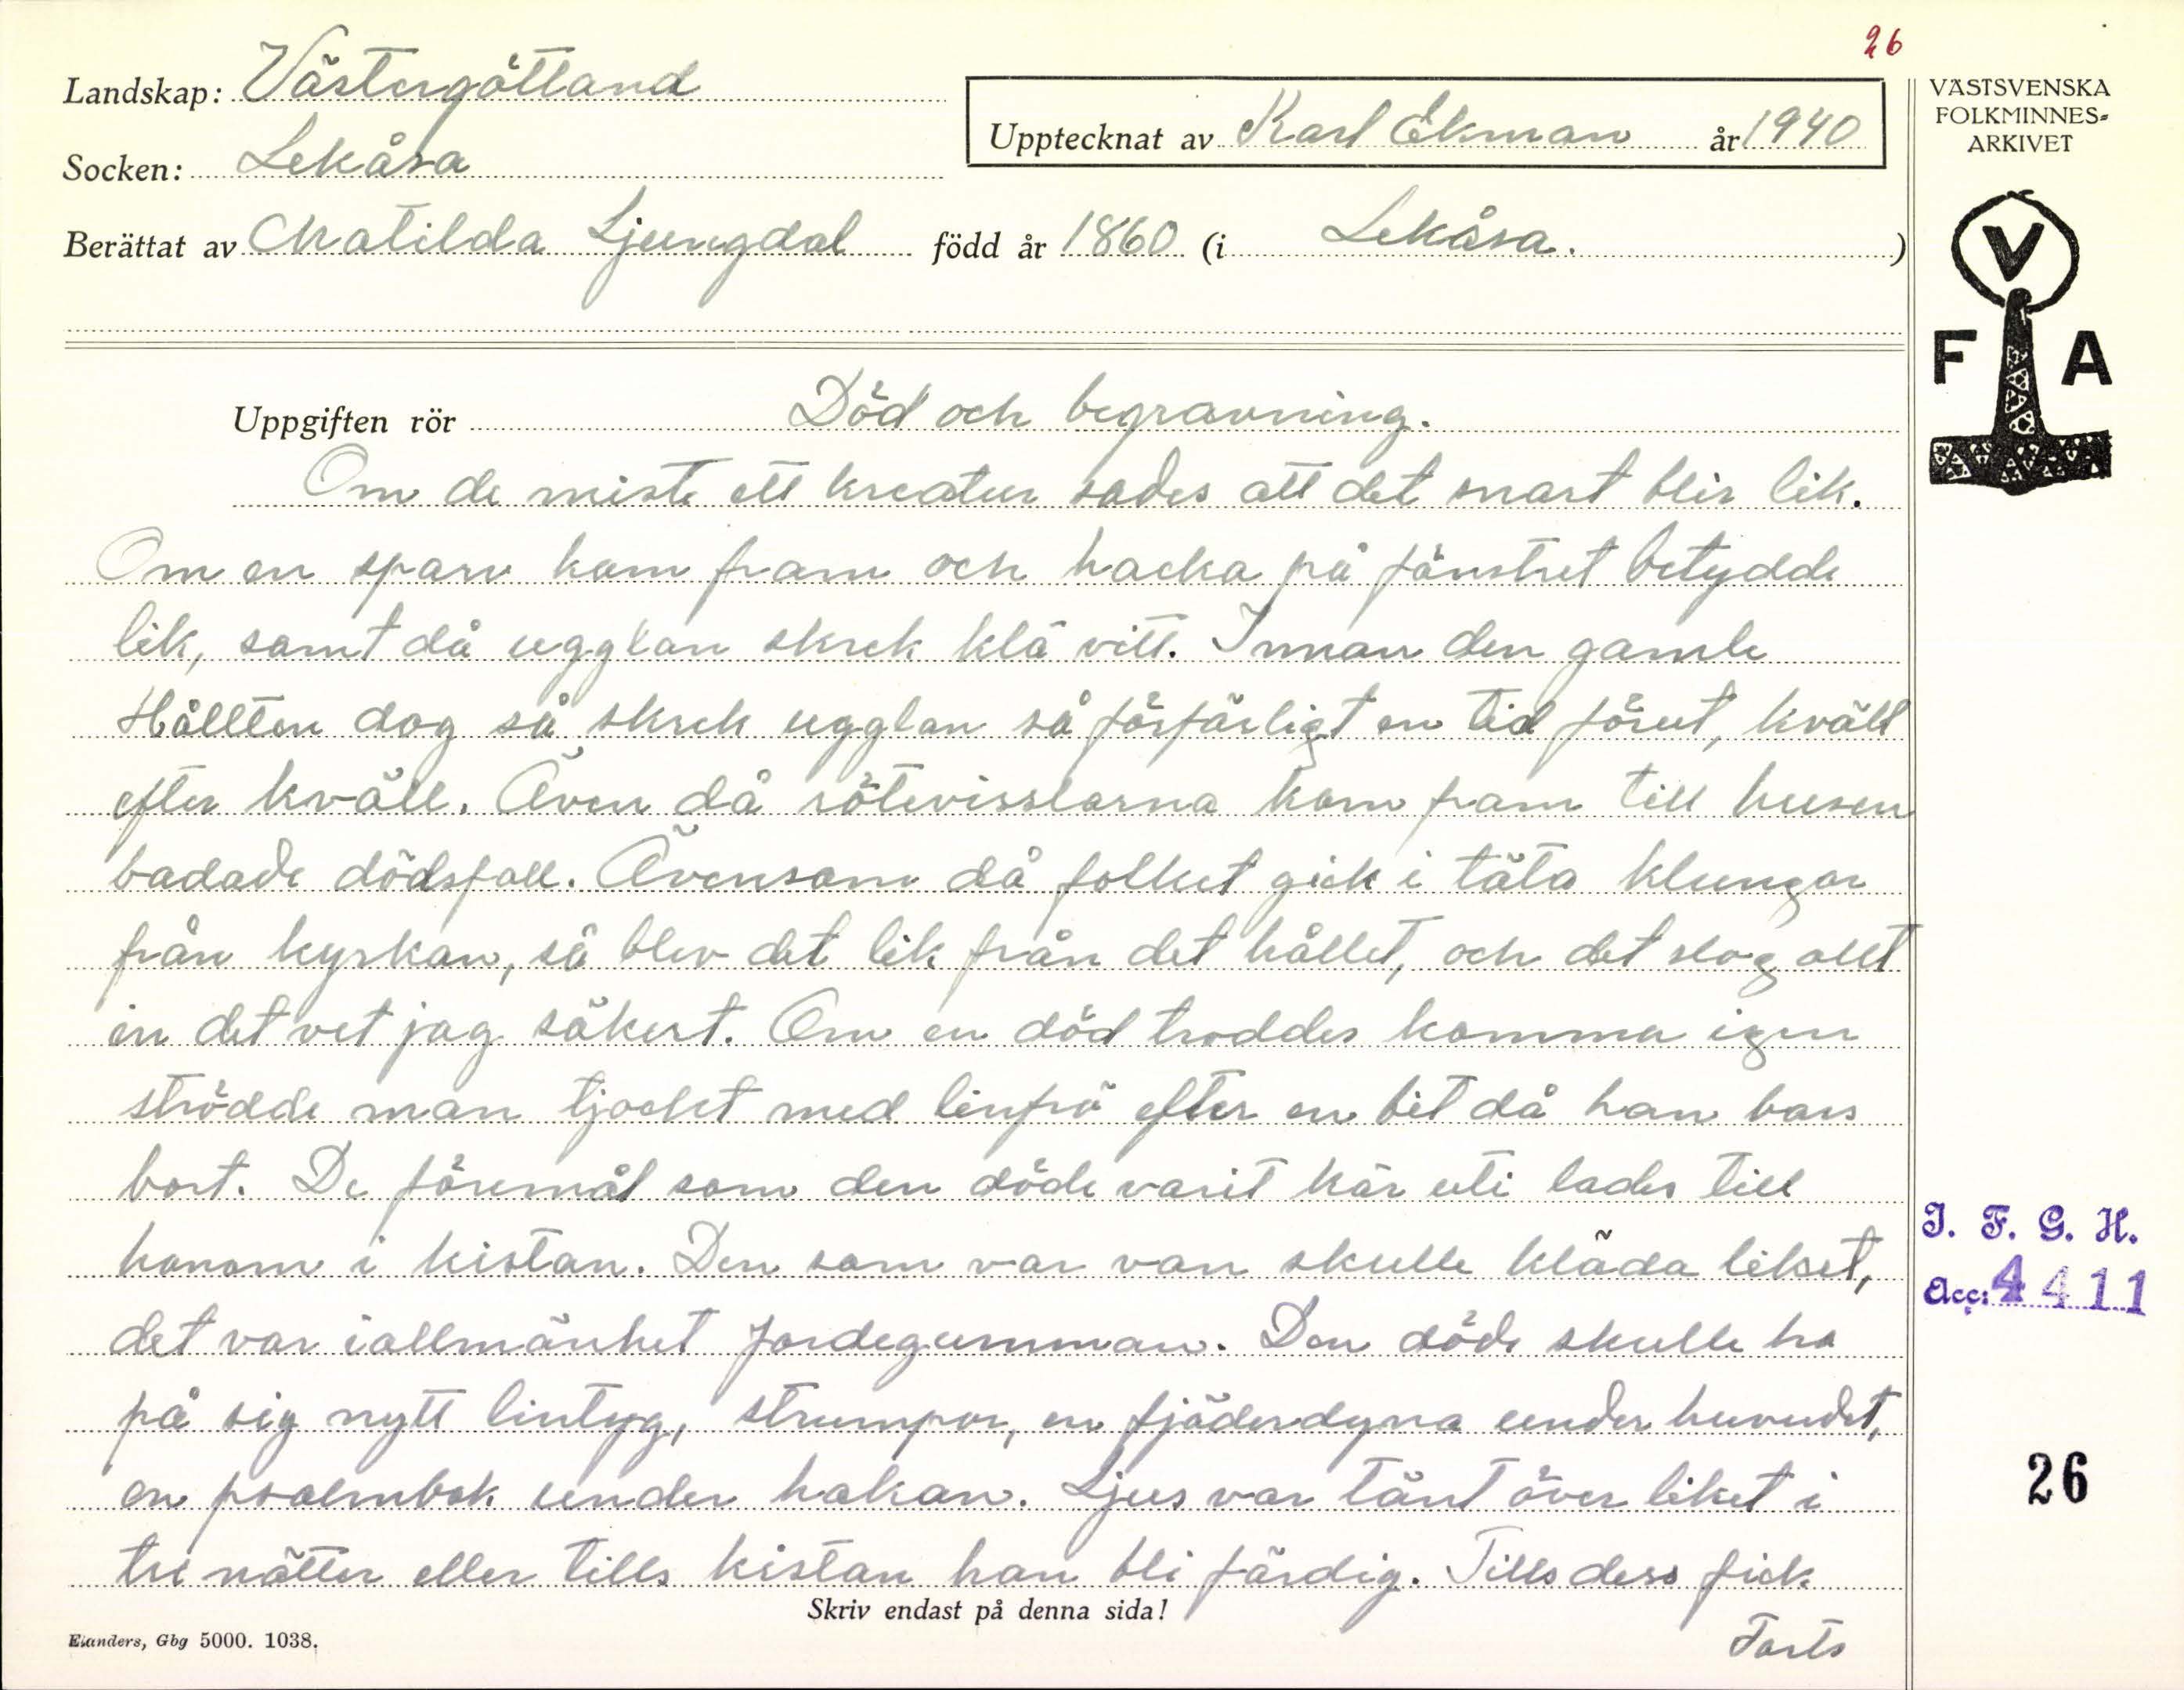 26
Landskap: Västergötland
Upptecknat av Karl Ekman år 1940
Socken: Lekåsa
Berättat av Matilda Ljungdal född år 1860 (i Lekåsa.)
VÄSTSVENSKA
FOLKMINNES-
ARKIVET
V
F A
Uppgiften rör Död och begravning.
Om de miste ett kreatur sades att det snart blir lik.
Om en sparv kom fram och hacka på fönstret betydde
lik, samt då ugglan skrek klä vitt. Innan den gamle
Hållten dog så skrek ugglan så förfärligt en tid förut, kväll
efter kväll. Även då sötevisslarna kom fram till husen
badade dödsfall. Ävensom då folket gick i täta klungor
från kyrkan, så blev det lik från det hållet, och det slog allt
in det vet jag säkert. Om en död troddes komma igen
strödde man tjocket med linfrö efter en bit då han bars
bort. De föremål som den döde varit kär uti lades till
honom i kistan. Den som var van skulle kläda likset,
det var iallmänhet Jordegumman. Den döde skulle ha
på sig nytt lintyg, strumpor, en fjäderdyna under huvudet,
en psalmbok under hakan. Ljus var tänt över liket i
tre nätter eller tills kistan han bli färdig. Tills dess fick
Forts
Skriv endast på denna sida!
Elanders, Gbg 5000. 1038.
I. F. G. H.
Acc: 4411
26